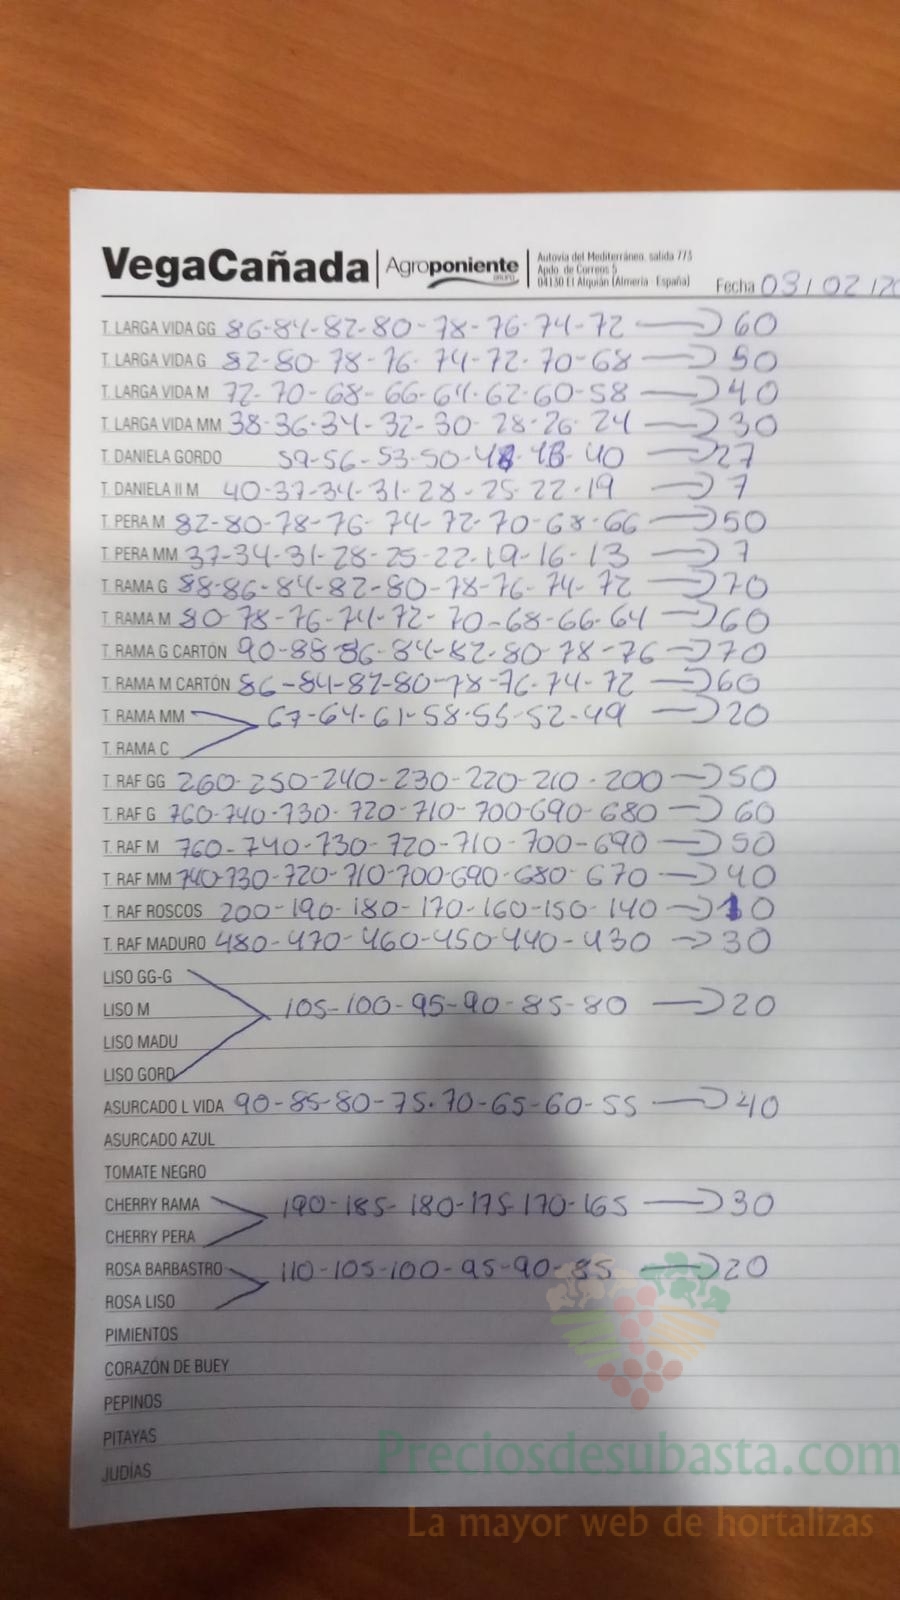 VegaCañada | Agroponiente GRUPO | Autovía del Mediterráneo, salida 773
Apdo. de Correos 5
04130 El Alquián (Almería - España)
Fecha 03/02/20
T. LARGA VIDA GG 86-84-82-80-78-76-74-72 → 60
T. LARGA VIDA G 82-80-78-76-74-72-70-68 → 50
T. LARGA VIDA M 72-70-68-66-64-62-60-58 → 40
T. LARGA VIDA MM 38-36-34-32-30-28-26-24 → 30
T. DANIELA GORDO 59-56-53-50-48-43-40 → 27
T. DANIELA II M 40-37-34-31-28-25-22-19 → 7
T. PERA M 82-80-78-76-74-72-70-68-66 → 50
T. PERA MM 37-34-31-28-25-22-19-16-13 → 7
T. RAMA G 88-86-84-82-80-78-76-74-72 → 70
T. RAMA M 80-78-76-74-72-70-68-66-64 → 60
T. RAMA G CARTÓN 90-88-86-84-82-80-78-76 → 70
T. RAMA M CARTÓN 86-84-82-80-78-76-74-72 → 60
T. RAMA MM 67-64-61-58-55-52-49 → 20
T. RAMA C
T. RAF GG 260-250-240-230-220-210-200 → 50
T. RAF G 760-740-730-720-710-700-690-680 → 60
T. RAF M 760-740-730-720-710-700-690 → 50
T. RAF MM 740-730-720-710-700-690-680-670 → 40
T. RAF ROSCOS 200-190-180-170-160-150-140 → 10
T. RAF MADURO 480-470-460-450-440-430 → 30
LISO GG-G
LISO M 105-100-95-90-85-80 → 20
LISO MADU
LISO GORD
ASURCADO L VIDA 90-85-80-75-70-65-60-55 → 40
ASURCADO AZUL
TOMATE NEGRO
CHERRY RAMA 190-185-180-175-170-165 → 30
CHERRY PERA
ROSA BARBASTRO 110-105-100-95-90-85 → 20
ROSA LISO
PIMIENTOS
CORAZÓN DE BUEY
PEPINOS
PITAYAS
JUDÍAS
Preciosdesubasta.com
La mayor web de hortalizas